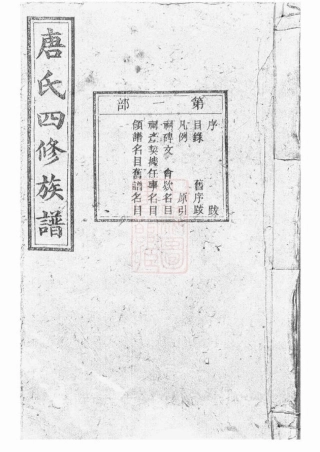 唐氏四修族譜
第一部
序 跋
目錄 舊序跋
凡例 原引
祠碑文 會欵名目
祠產契據任事名目
領譜名目舊譜名目